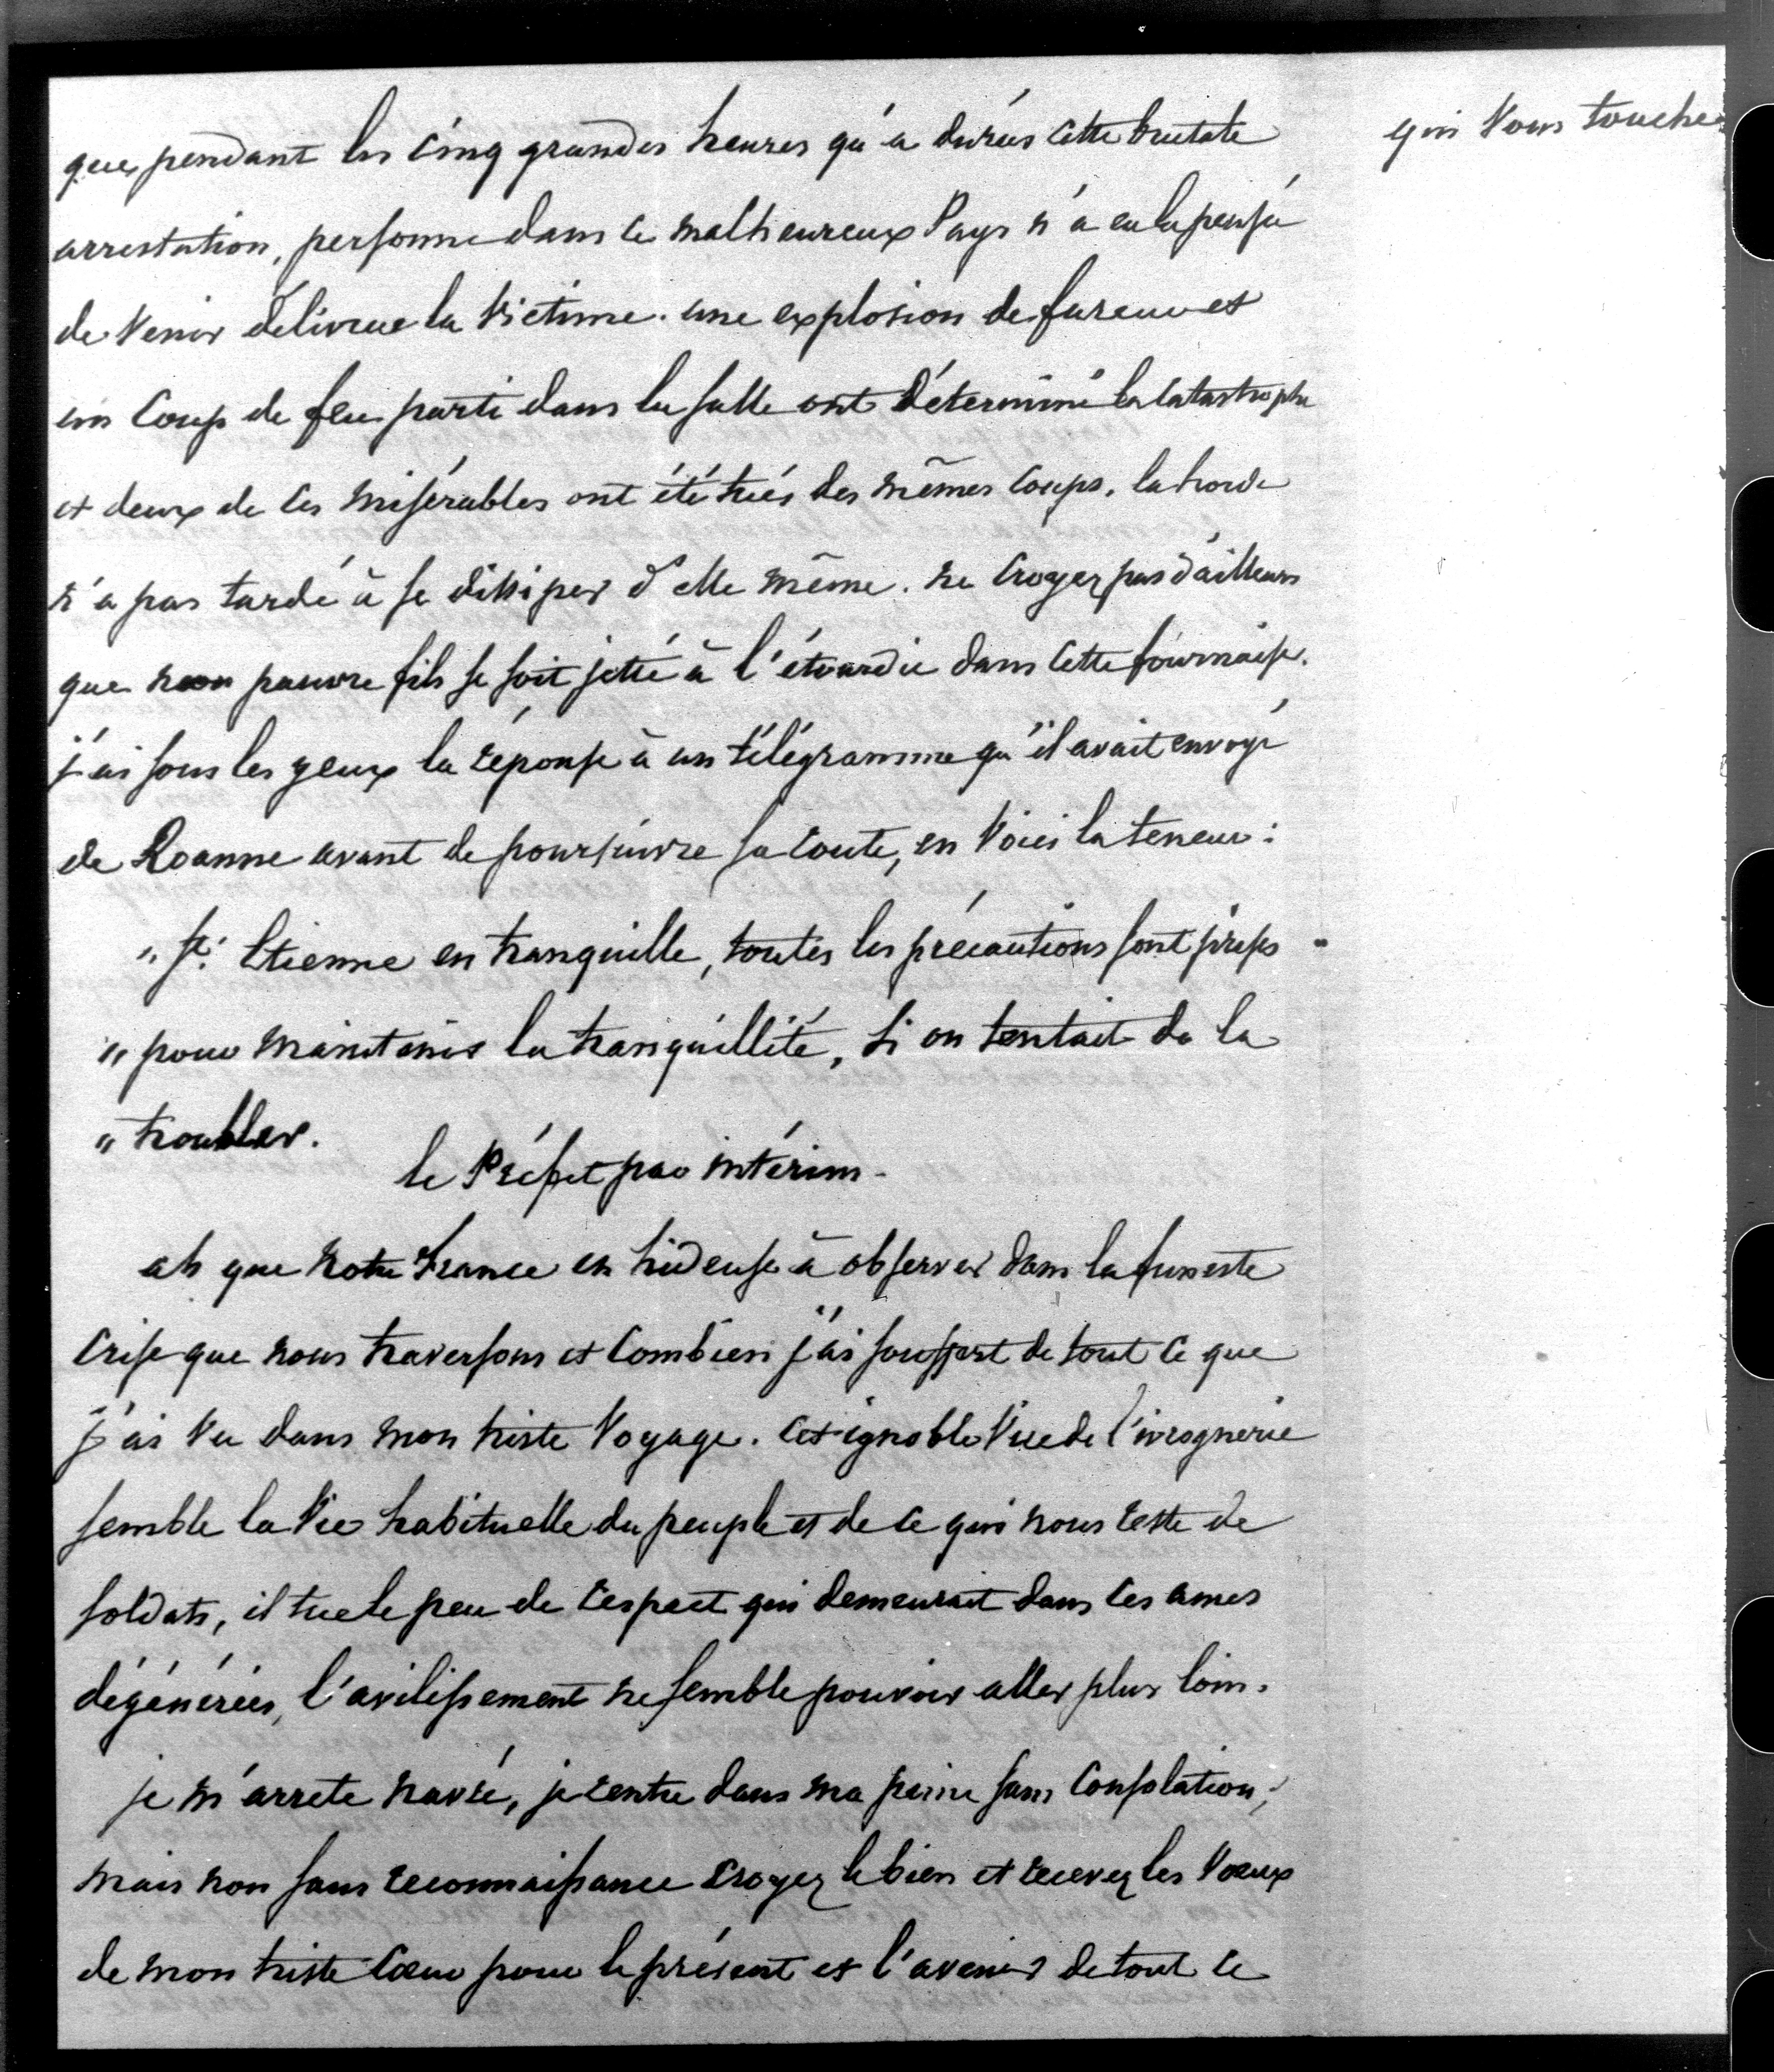 que pendant les cinq grandes heures qu'a durées cette brutale
arrestation, personne dans ce malheureux Pays n'a eu la pensée
de venir délivrer la victime. une explosion de fureur et
un coup de feu parti dans la salle ont déterminé la catastrophe
et deux de ces misérables ont été tués des mêmes coups. la horde
n'a pas tardé à se dissiper d'elle même. ne croyez pas d'ailleurs
que mon pauvre fils se soit jetté à l'étourdie dans cette fournaise.
j'ai sous les yeux la réponse à un télégramme qu'il avait envoyé
de Roanne avant de poursuivre sa route, en voici la teneur :
" St. Etienne est tranquille, toutes les précautions sont prises "
" pour maintenir la tranquillité, si on tentait de la
" troubler.
le Préfet par intérim -
ah que notre France est hideuse à observer dans la funeste
crise que nous traversons et combien j'ai souffert de tout ce que
j'ai vu dans mon triste voyage. cet ignoble vice de l'ivrognerie
semble la vie habituelle du peuple et de ce qui nous reste de
soldats, il tue le peu de respect qui demeurait dans ces ames
dégénérées, l'avilissement ne semble pouvoir aller plus loin.
je m'arrete navré, je rentre dans ma peine sans consolation,
mais non sans reconnaissance croyez le bien et recevez les voeux
de mon triste coeur pour le présent et l'avenir de tout ce
qui vous touche